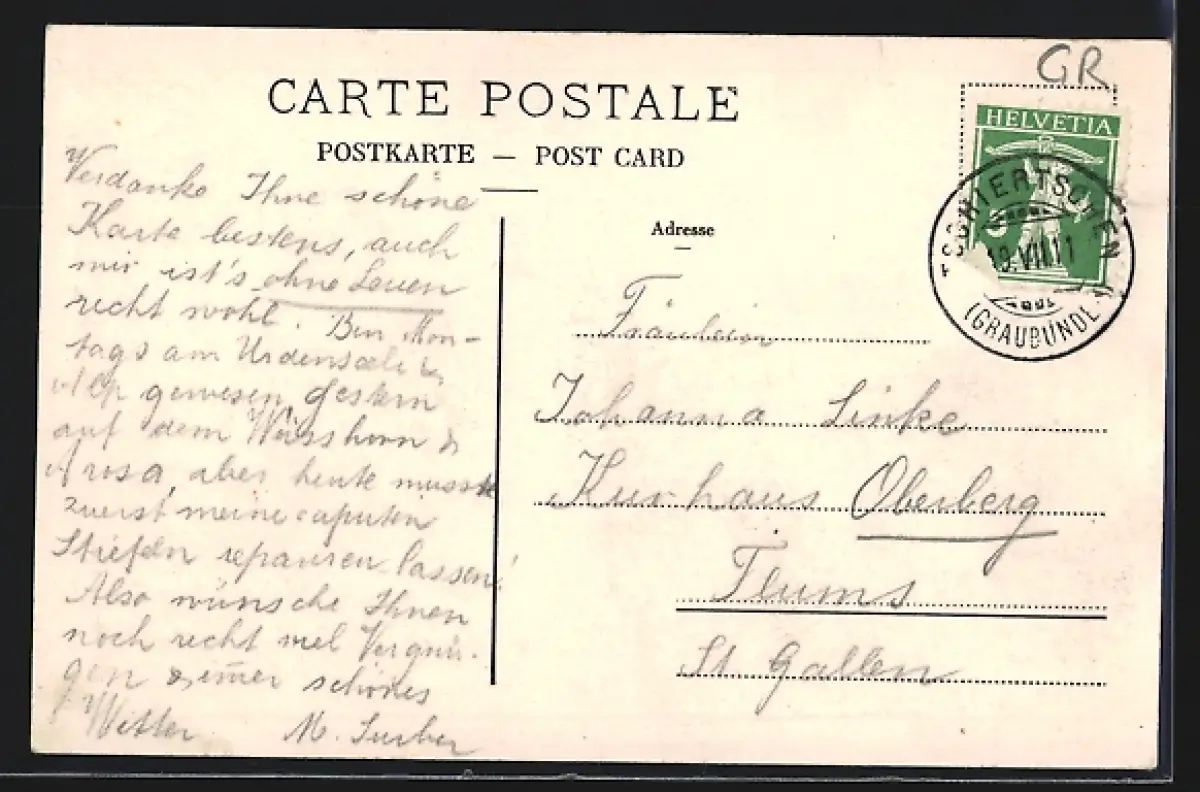 GR
CARTE POSTALE
POSTKARTE — POST CARD
HELVETIA
TSCHIERTSCHEN
19.VII.11
(GRAUBÜNDE
Adresse
Fräulein
Johanna Linke
Kurhaus Oberberg
Flums
St. Gallen
Verdanke Ihne schöne
Karte bestens, auch
mir ist's ohne
recht wohl. Bin Mon-
tags am &
Alp gewesen gestern
auf dem Weisshorn &
Arosa, aber heute musste
zuerst meine caputen
Stiefeln reparieren lassen!
Also wünsche Ihnen
noch recht viel Vergnü-
gen & immer schönes
Wetter M. Surber